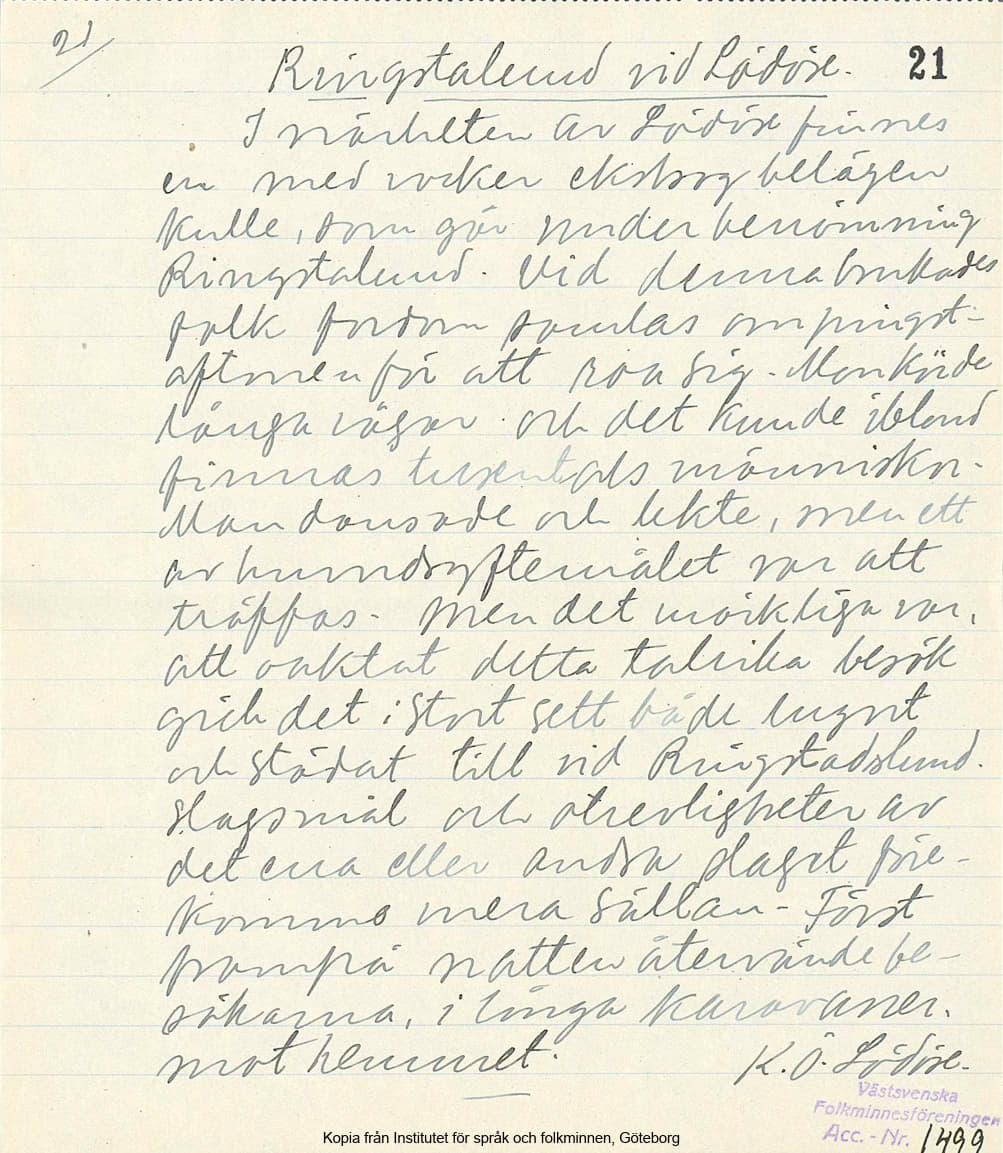 21
21
Ringstalund vid Lödöse.
I närheten av Lödöse finnes
en med vacker ekskog belägen
kulle, som går under benämning
Ringstalund. Vid denna brukades
folk fordom samlas om pingst-
aftonen för att roa sig. Man körde
långa vägar och det kunde ibland
finnas tusentals människor.
Man dansade och lekte, men ett
av huvudsyftemålet var att
träffas. Men det märkliga var,
att oaktat detta talrika besök
gick det i stort sett både lugnt
och städat till vid Ringstadslund.
Slagsmål och otrevligheter av
det ena eller andra slaget före-
komma mera sällan. Först
frampå natten återvände be-
sökarna, i långa karavaner.
mot hemmet.
K. Ö. Lödöse.
Västsvenska
Folkminnesföreningen
Acc. - Nr. 1499
Kopia från Institutet för språk och folkminnen, Göteborg